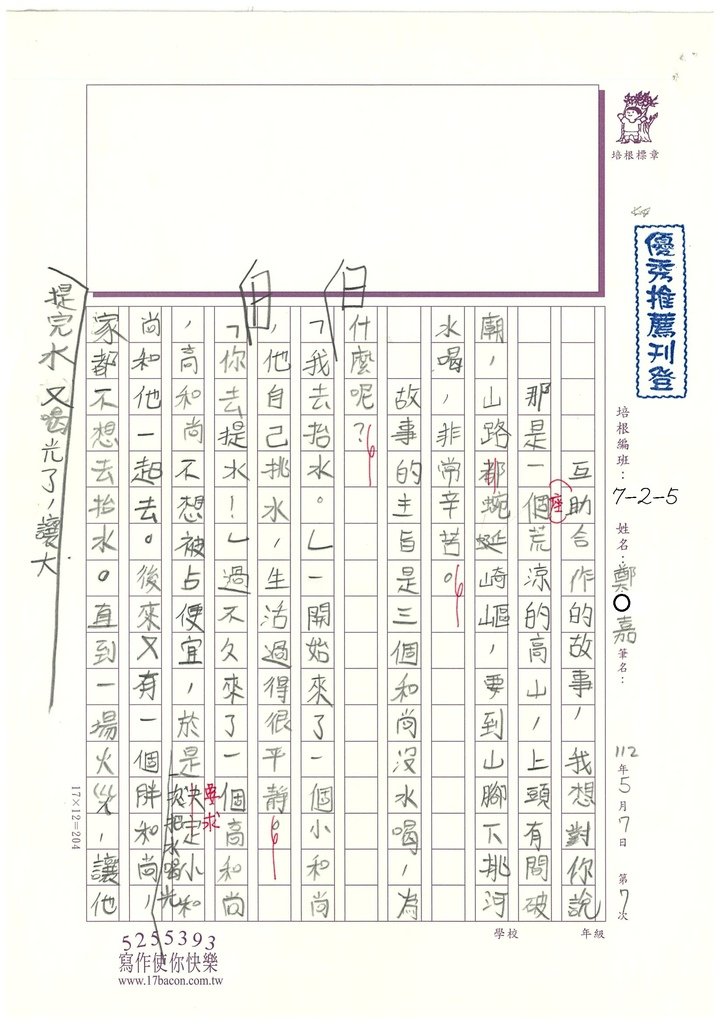 培根標章
優秀推薦刊登
培根編班：7-2-5 姓名：鄭 嘉 筆名：
112年5月7日 第7次
學校 年級
互助合作的故事，我想對你說
那是一個荒涼的高山，上頭有間破
座
廟，山路都蜿蜒崎嶇，要到山腳下挑河
水喝，非常辛苦。
故事的主旨是三個和尚沒水喝，為
什麼呢？
「我去抬水。」一開始來了一個小和尚
，他自己挑水，生活過得很平靜
「你去提水！」過不久來了一個高和尚
要求
，高和尚不想被占便宜，於是決定小和
一次把水喝光
尚和他一起去。後來又有一個胖和尚，
家都不想去抬水。直到一場火災，讓他
提完水又喝光了，讓大
17×12=204
5255393
寫作使你快樂
www.17bacon.com.tw